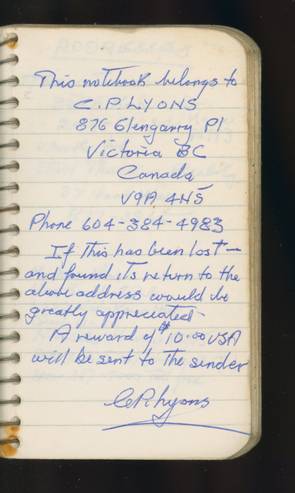 This notebook belongs to
C.P. LYONS
876 Glengarry Pl
Victoria BC
Canada
V9A 4N5
Phone 604-384-4983
If this has been lost —
and found its return to the
above address would be
greatly appreciated -
A reward of $10.00 USA
will be sent to the sender
C.P. Lyons